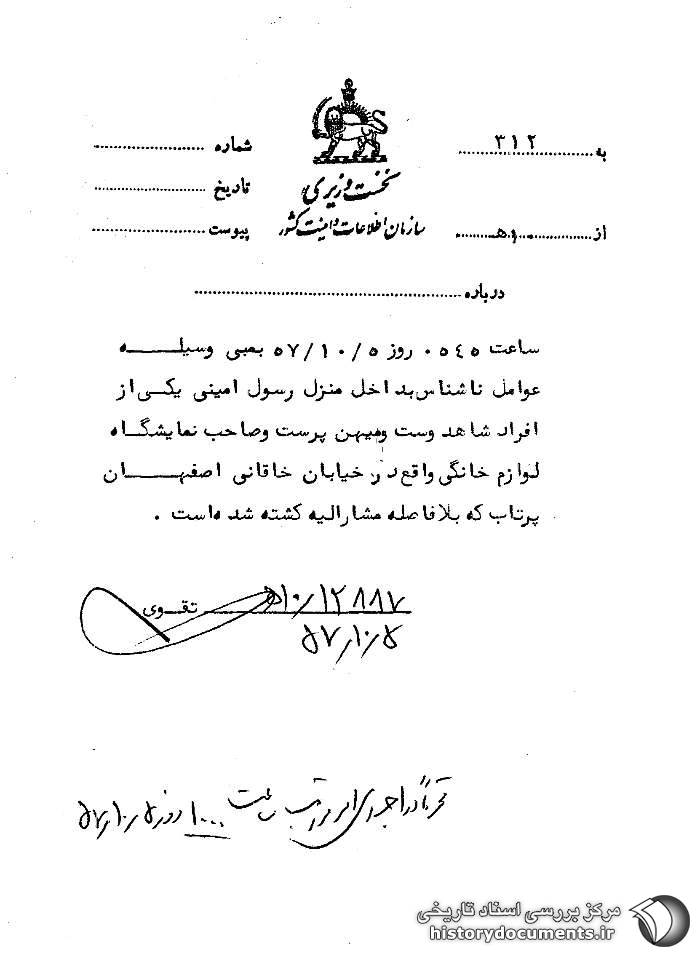 به ۳۱۲
شماره
نخست وزیری
تاریخ
سازمان اطلاعات و امنیت کشور
از ه
پیوست
درباره
ساعت ۰۵٤۵ روز ۵۷/۱۰/۵ بمبی وسیله
عوامل ناشناس بداخل منزل رسول امینی یکی از
افراد شاهدوست ومیهن پرست وصاحب نمایشگاه
لوازم خانگی واقع در خیابان خاقانی اصفهان
پرتاب که بلافاصله مشارالیه کشته شده است .
۱۰/۱۲۸۸۷
تقوی
۵۷/۱۰/۵
ساعت ۱۰۰۰ روز ۵۷/۱۰/۵
مرکز بررسی اسناد تاریخی
historydocuments.ir